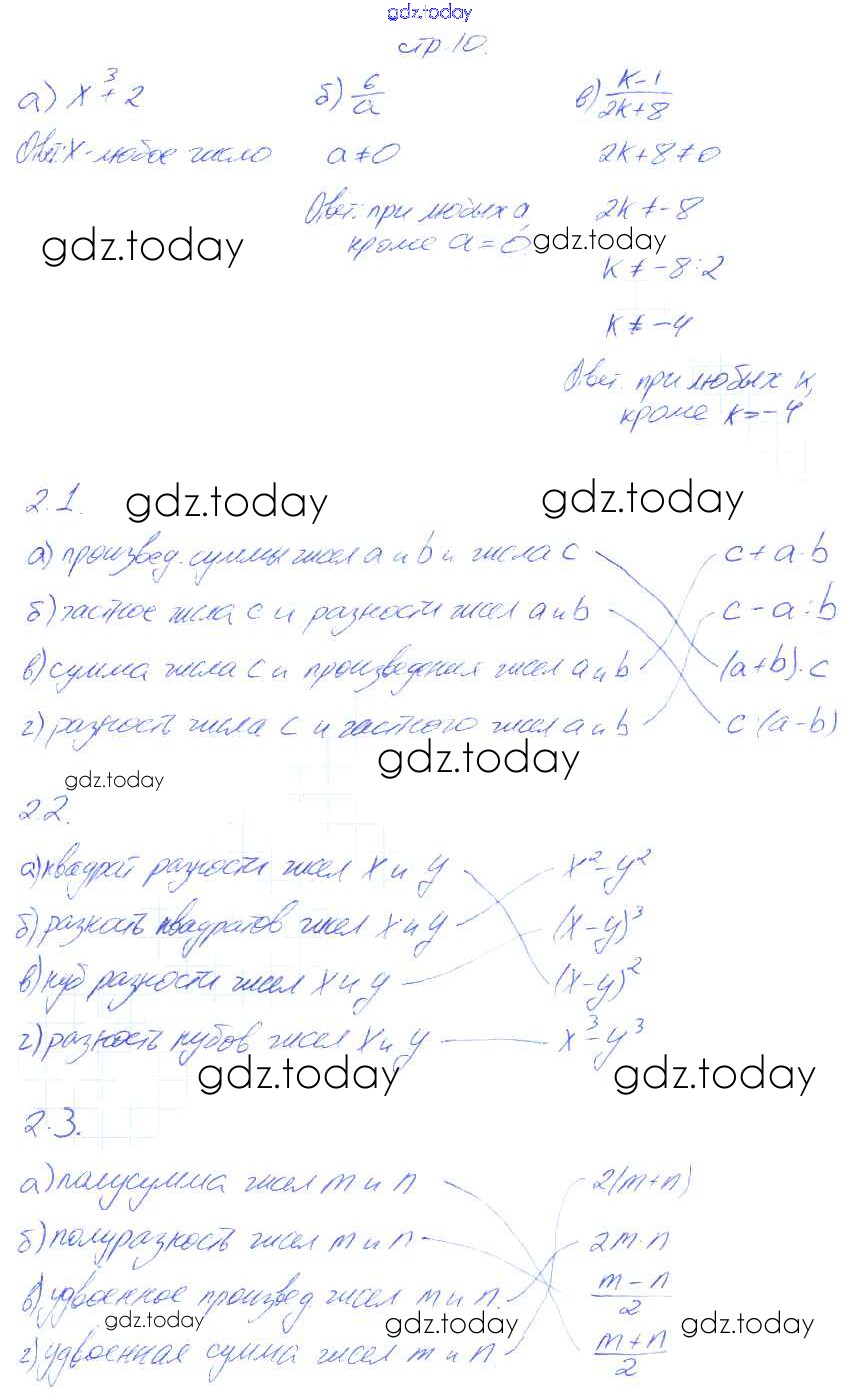 gdz.today
стр.10.
а) x³+2 б) 6/a в) k-1/2k+8
Ответ: x - любое число a≠0 2k+8≠0
Ответ: при любых a, 2k≠-8
gdz.today кроме a=0 gdz.today
k≠-8:2
k≠-4
Ответ: при любых k,
кроме k=-4
2.1. gdz.today gdz.today
а) произвед. суммы чисел a и b и числа c c+a·b
б) частное числа c и разности чисел a и b c-a:b
в) сумма числа c и произведения чисел a и b (a+b)·c
г) разность числа c и частного чисел a и b c:(a-b)
gdz.today gdz.today
2.2.
а) квадрат разности чисел x и y x²-y²
б) разность квадратов чисел x и y (x-y)³
в) куб разности чисел x и y (x-y)²
г) разность кубов чисел x и y x³-y³
gdz.today gdz.today
2.3.
а) полусумма чисел m и n 2(m+n)
б) полуразность чисел m и n 2m·n
в) удвоенное произвед. чисел m и n. m-n/2
gdz.today gdz.today gdz.today
г) удвоенная сумма чисел m и n. m+n/2